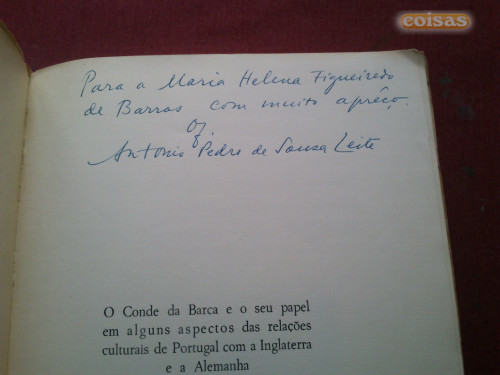 coisas
Para a Maria Helena Figueiredo
de Barros com muito aprêço.
of.
Antonio Pedro de Sousa Leite
O Conde da Barca e o seu papel
em alguns aspectos das relações
culturais de Portugal com a Inglaterra
e a Alemanha